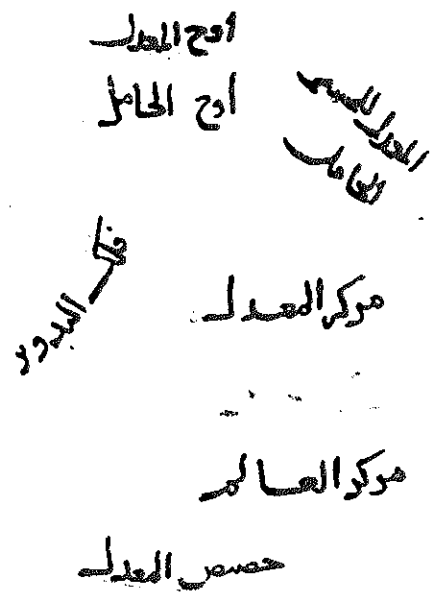 أوج المعدل
أوج الحامل
المعدل للمسير
الحامل
فلك التدوير
مركز المعدل
مركز العالم
حضيض المعدل